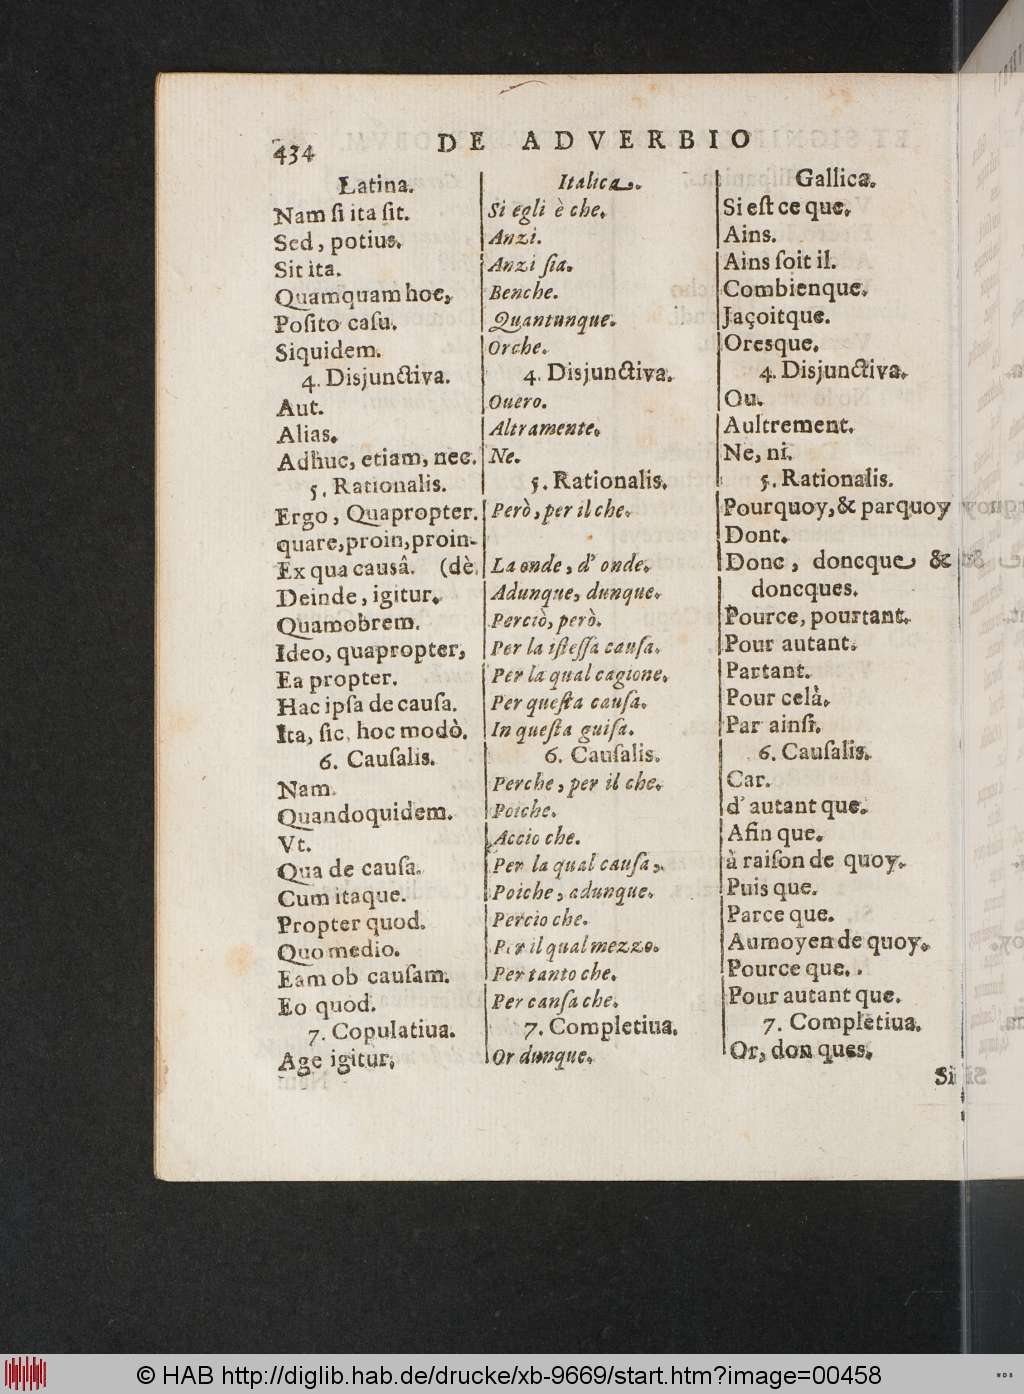 434 DE ADVERBIO
Latina. Italica. Gallica.
Nam ſi ita ſit. Si egli è che. Si eſt ce que.
Sed, potius. Anzi. Ains.
Sit ita. Anzi ſia. Ains ſoit il.
Quamquam hoc, Benche. Combienque.
Poſito caſu. Quantunque. Jaçoitque.
Siquidem. Orche. Oresque.
4. Disjunctiva. 4. Disjunctiva. 4. Disjunctiva.
Aut. Ouero. Ou.
Alias. Altramente. Aultrement.
Adhuc, etiam, nec. Ne. Ne, ni.
5. Rationalis. 5. Rationalis. 5. Rationalis.
Ergo, Quapropter. Però, per il che. Pourquoy, & parquoy
quare, proin, proin- Dont.
Ex qua causâ. (dè. La onde, d' onde. Donc, doncque &
Deinde, igitur. Adunque, dunque. doncques.
Quamobrem. Perciò, però. Pource, pourtant.
Ideo, quapropter, Per la iſteſſa cauſa. Pour autant.
Ea propter. Per la qual cagione. Partant.
Hac ipſa de cauſa. Per queſta cauſa. Pour celà.
Ita, ſic, hoc modò. In queſta guiſa. Par ainſi.
6. Cauſalis. 6. Cauſalis. 6. Cauſalis.
Nam. Perche, per il che. Car.
Quandoquidem. Poiche. d' autant que.
Vt. Accio che. Afin que.
Qua de cauſa. Per la qual cauſa, à raiſon de quoy.
Cum itaque. Poiche, adunque. Puis que.
Propter quod. Percio che. Parce que.
Quo medio. Per il qual mezzo. Au moyen de quoy.
Eam ob cauſam. Per tanto che. Pource que.
Eo quod. Per cauſa che. Pour autant que.
7. Copulatiua. 7. Completiua. 7. Completiua.
Age igitur, Or dunque. Or, don ques.
Si
© HAB http://diglib.hab.de/drucke/xb-9669/start.htm?image=00458